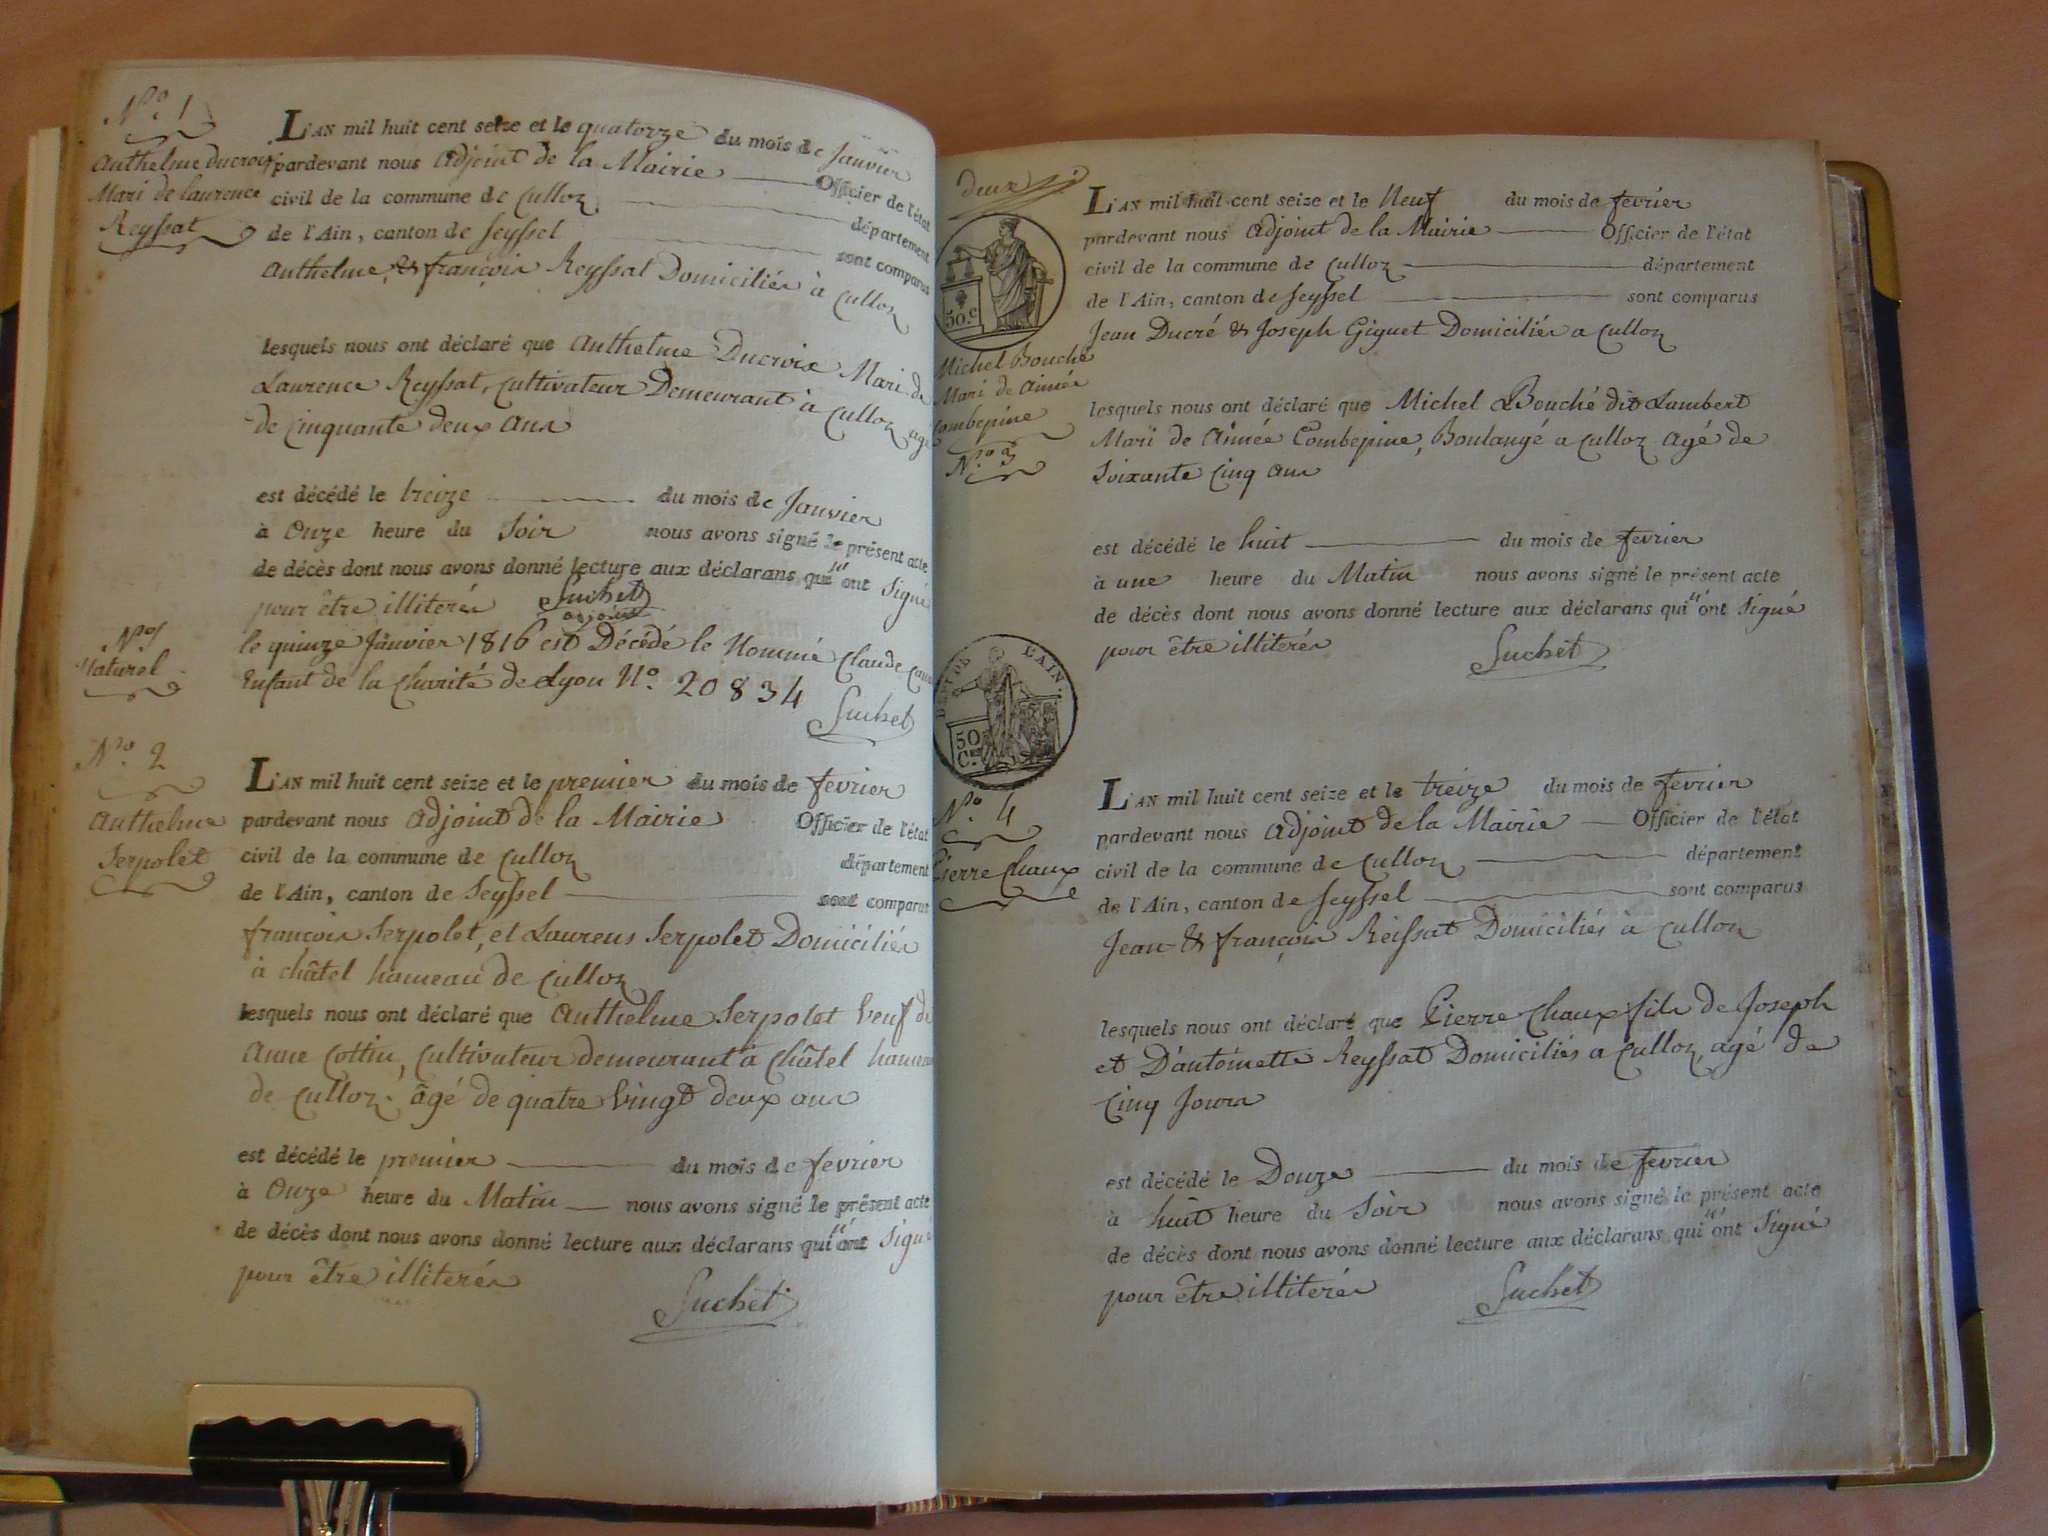 N.o 1
Anthelme ducroix
Mari de laurence
Reyssat
L'AN mil huit cent seize et le quatorze du mois de Janvier
pardevant nous Adjoint de la Mairie Officier de l'état
civil de la commune de Culloz département
de l'Ain, canton de Seyssel sont comparus
Anthelme & françois Reyssat Domiciliés à Culloz
lesquels nous ont déclaré que Anthelme Ducroix Mari de
Laurence Reyssat, Cultivateur Demeurant à Culloz agé
de Cinquante deux ans
est décédé le treize du mois de Janvier
à Onze heure du Soir nous avons signé le présent acte
de décès dont nous avons donné lecture aux déclarans qui n'ont Signé
pour être illiterés Suchet
adjoint
Naturel
le quinze Janvier 1816 est Décédé le Nommé Claude
Enfant de la Charité de Lyon N.o 20834
Suchet
N.o 2
Anthelme
Serpolet
L'AN mil huit cent seize et le premier du mois de fevrier
pardevant nous Adjoint de la Mairie Officier de l'état
civil de la commune de Culloz département
de l'Ain, canton de Seyssel sont comparus
françois Serpolet, et Laurens Serpolet Domiciliés
à châtel hameau de Culloz
lesquels nous ont déclaré que Anthelme Serpolet Veuf de
Anne Cottin, Cultivateur demeurant à Châtel hameau
de Culloz. âgé de quatre Vingt deux ans
est décédé le premier du mois de fevrier
à Onze heure du Matin nous avons signé le présent acte
de décès dont nous avons donné lecture aux déclarans qui n'ont Signé
pour être illiterés
Suchet
deux
50.c
Michel Bouché
Mari de Aimée
Combepine
N.o 3
L'AN mil huit cent seize et le Neuf du mois de fevrier
pardevant nous Adjoint de la Mairie Officier de l'état
civil de la commune de Culloz département
de l'Ain, canton de Seyssel sont comparus
Jean Ducré & Joseph Giguet Domiciliés a Culloz
lesquels nous ont déclaré que Michel Bouché dit Lambert
Mari de Aimée Combepine, Boulangé a Culloz Agé de
Soixante Cinq ans
est décédé le huit du mois de fevrier
à une heure du Matin nous avons signé le présent acte
de décès dont nous avons donné lecture aux déclarans qui n'ont Signé
pour être illiterés
Suchet
DEPT DE L'AIN.
50
C.es
N.o 4
Pierre Chaux
L'AN mil huit cent seize et le treize du mois de fevrier
pardevant nous Adjoint de la Mairie Officier de l'état
civil de la commune de Culloz département
de l'Ain, canton de Seyssel sont comparus
Jean & françois Reissat Domiciliés à Culloz
lesquels nous ont déclaré que Pierre Chaux fils de Joseph
et D'antoinette Reyssat Domiciliés a Culloz, agé de
Cinq Jours
est décédé le Douze du mois de fevrier
à huit heure du Soir nous avons signé le présent acte
de décès dont nous avons donné lecture aux déclarans qui n'ont Signé
pour être illiterés
Suchet